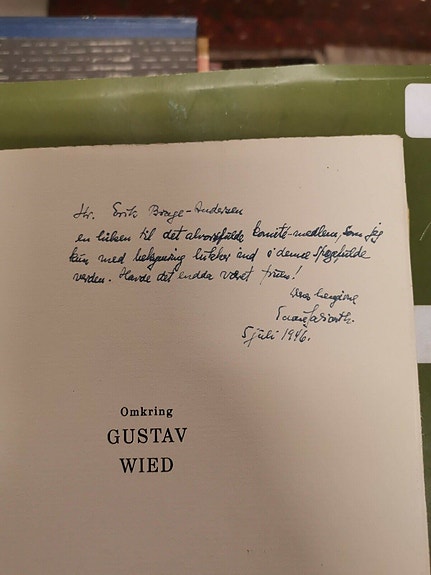 Hr. Erik Brage-Andersen
en hilsen til det alvorsfulde komite-medlem, som jeg
kun med bekymring lukker ind i denne spøgefulde
verden. Havde det endda været fruen!
Deres hengivne
5 juli 1946.
Omkring
GUSTAV
WIED